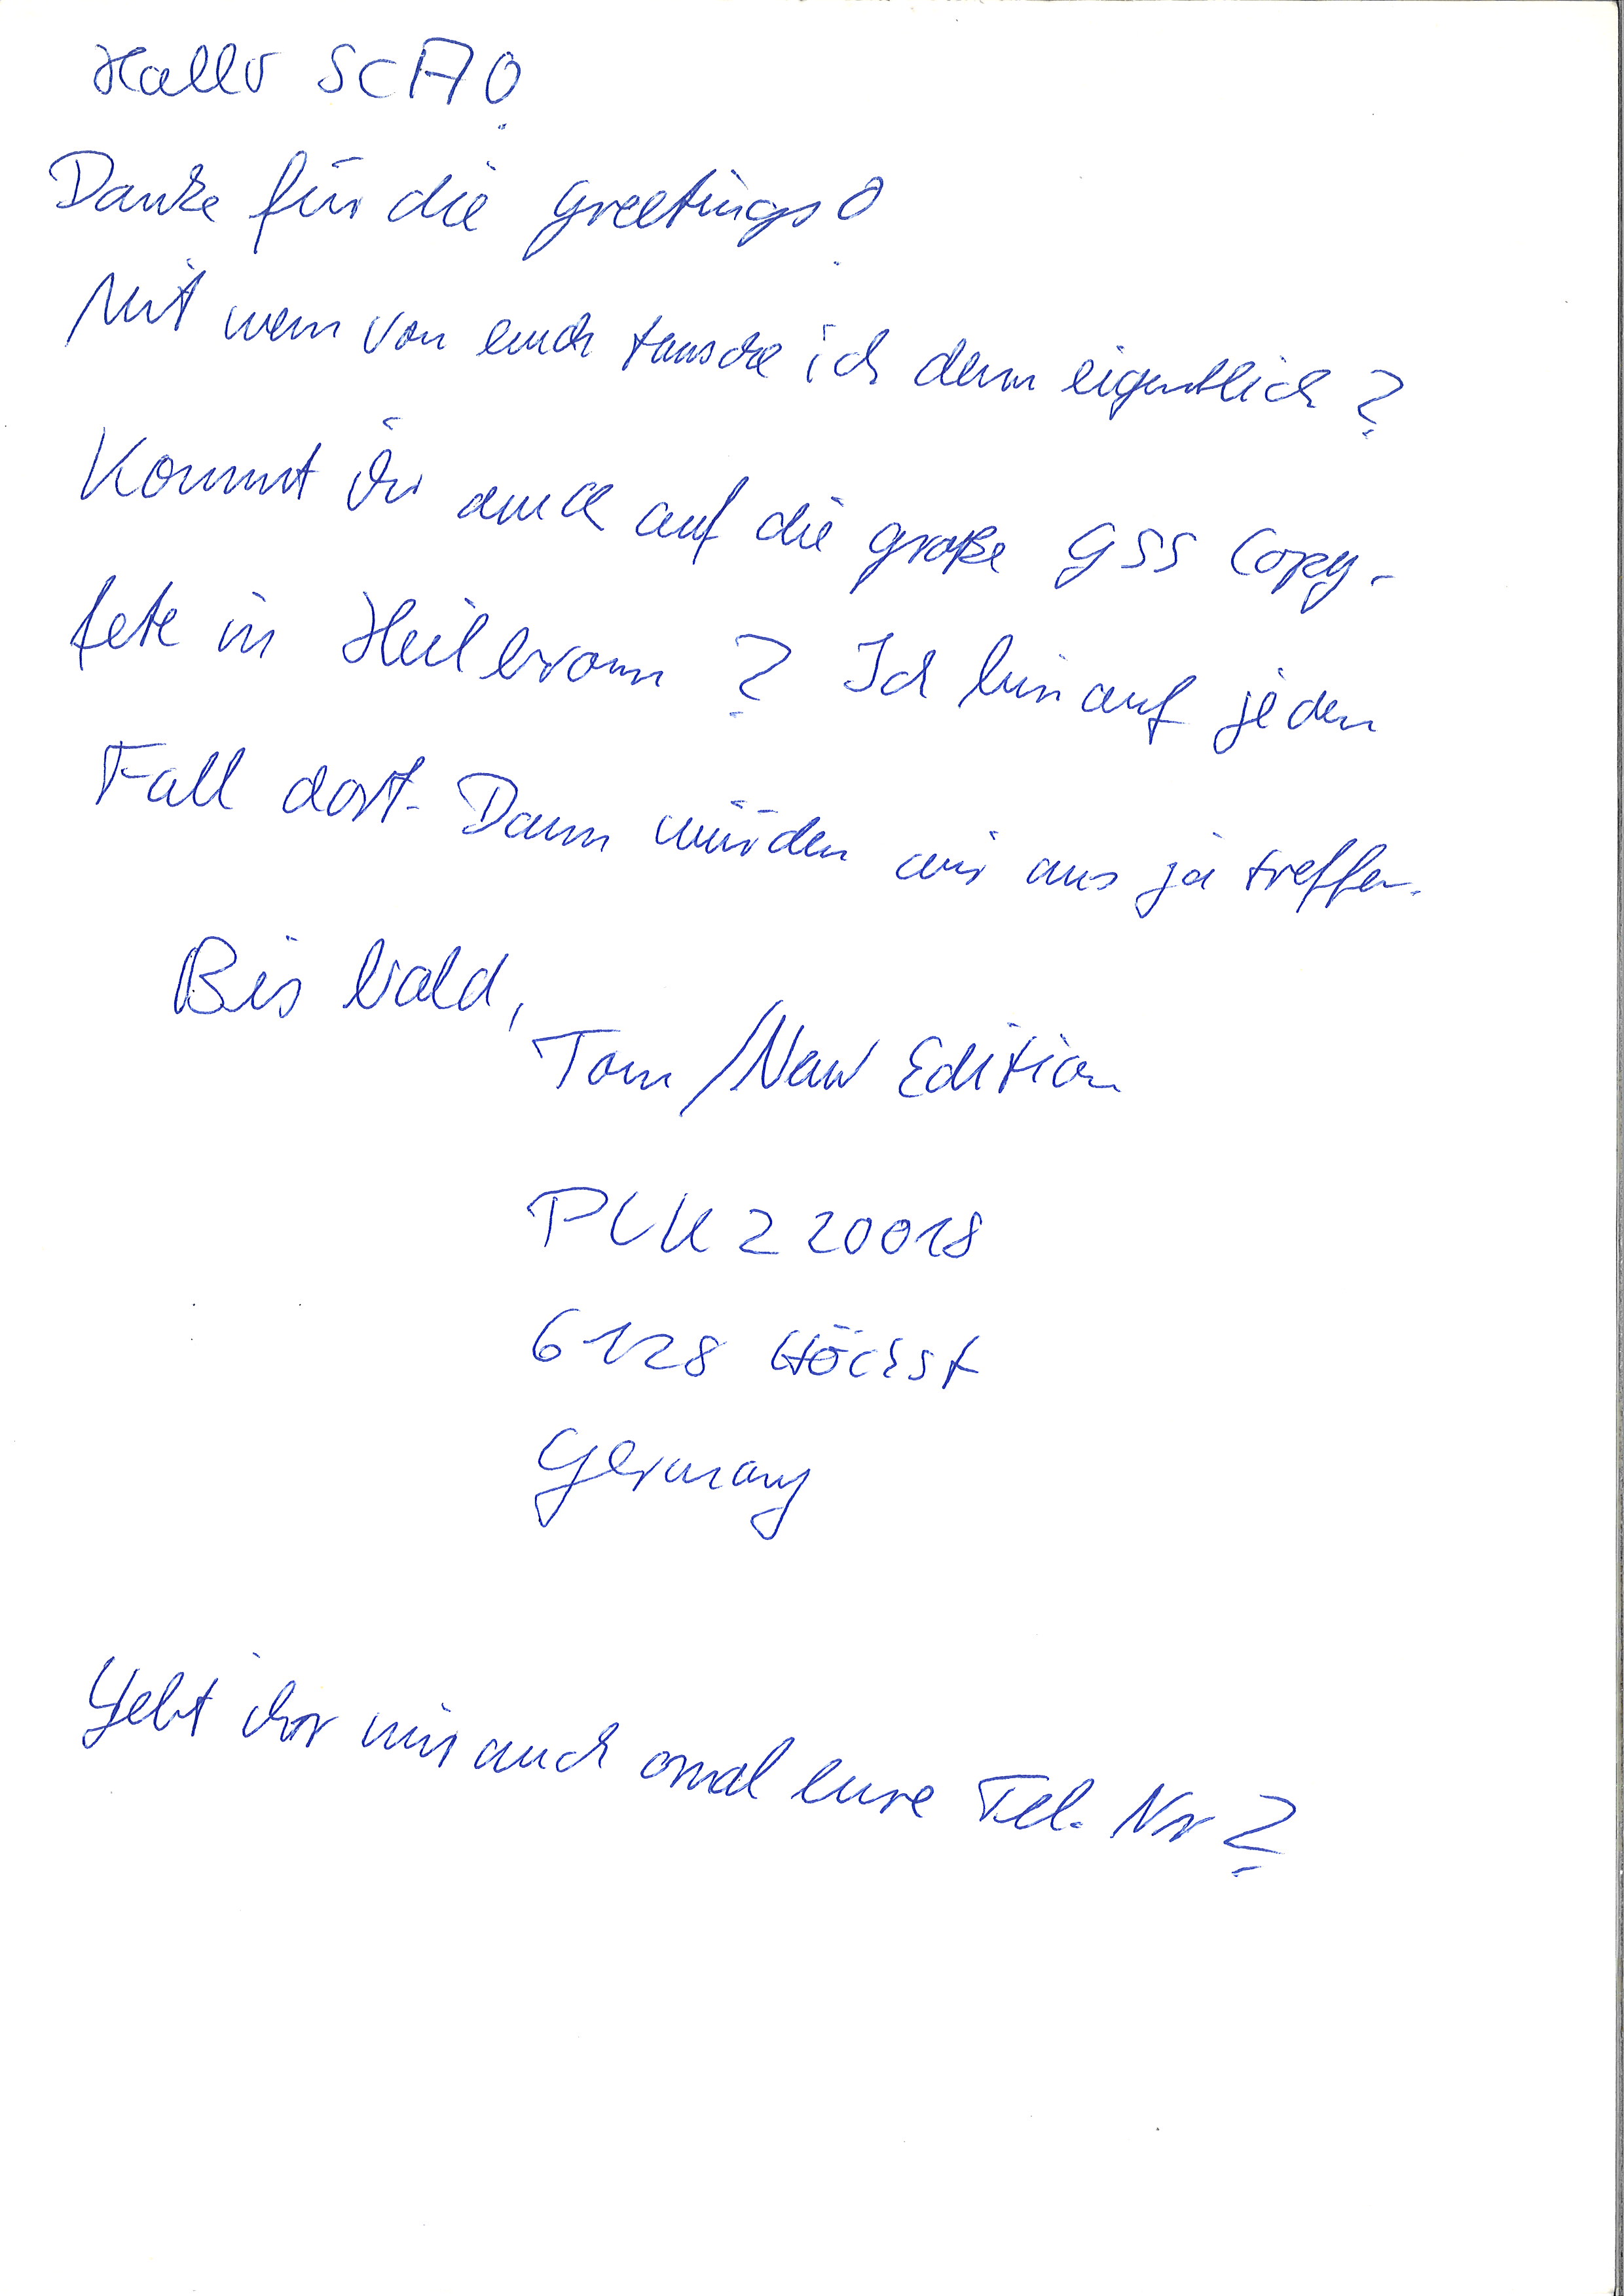 Hallo SCA!
Danke für die greetings!
Mit wem von euch tausche ich denn eigentlich?
Kommt ihr auch auf die große GSS Copy-
fete in Heilbronn? Ich bin auf jeden
Fall dort. Dann würden wir uns ja treffen.
Bis bald,
Tom/New Edition
PLK 220018
6128 Höchst
Germany
Gebt ihr mir auch mal eure Tel. Nr?